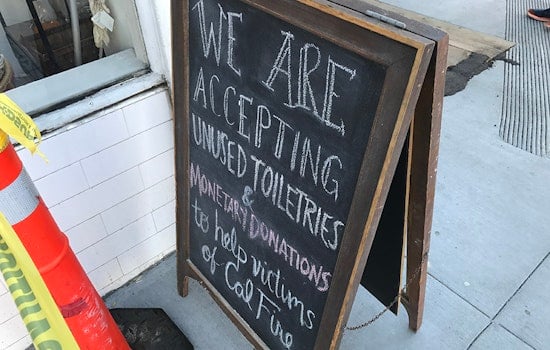 WE ARE
ACCEPTING
UNUSED TOILETRIES
&
MONETARY DONATIONS
to help victims
of Cal Fire